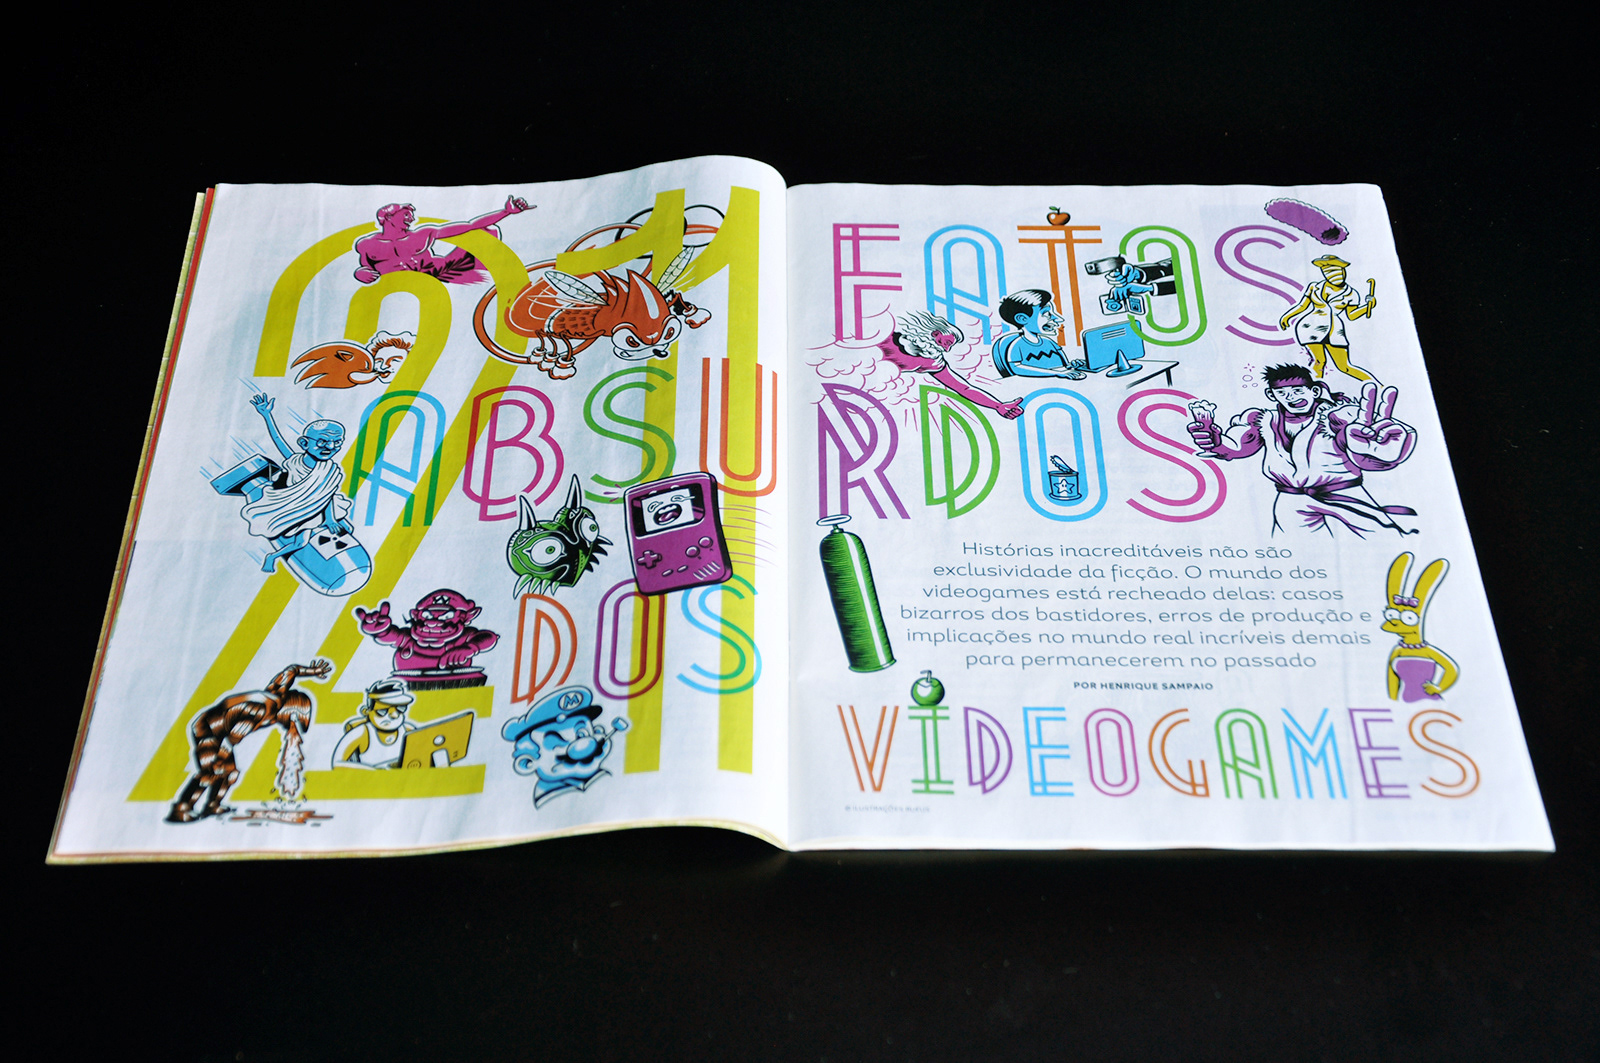 21 FATOS
ABSURDOS
DOS
VIDEOGAMES
Histórias inacreditáveis não são
exclusividade da ficção. O mundo dos
videogames está recheado delas: casos
bizarros dos bastidores, erros de produção e
implicações no mundo real incríveis demais
para permanecerem no passado
POR HENRIQUE SAMPAIO
M